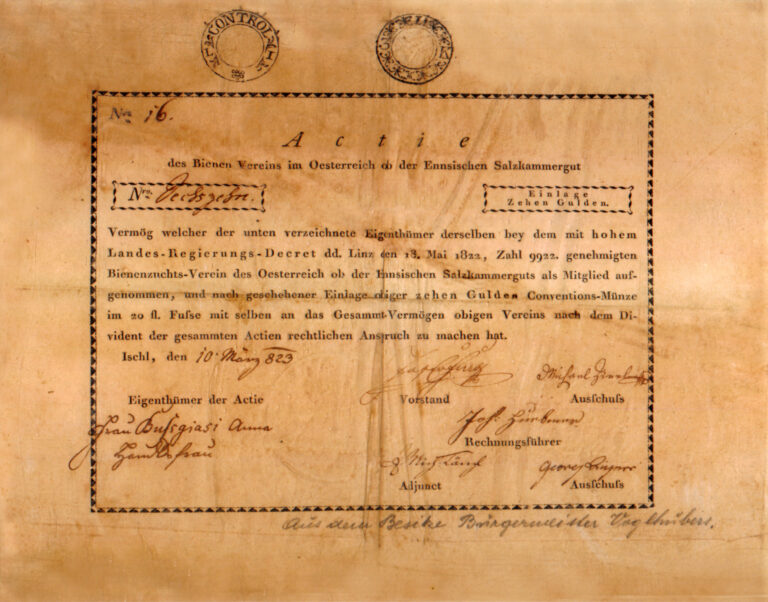 CONTROL
No 16.
Actie
des Bienen Vereins im Oesterreich ob der Ennsischen Salzkammergut
Nro. Sechszehn.
Einlage
Zehen Gulden.
Vermög welcher der unten verzeichnete Eigenthümer derselben bey dem mit hohem
Landes-Regierungs-Decret dd. Linz den 18. Mai 1822, Zahl 9922. genehmigten
Bienenzuchts-Verein des Oesterreich ob der Ennsischen Salzkammerguts als Mitglied auf-
genommen, und nach geschehener Einlage obiger zehen Gulden Conventions-Münze
im 20 fl. Fusse mit selben an das Gesammt-Vermögen obigen Vereins nach dem Di-
vident der gesammten Actien rechtlichen Anspruch zu machen hat.
Ischl, den 10. März 823
Michael
Eigenthümer der Actie
Vorstand
Ausſchuſs
Frau Anna
Handelsfrau
Joh.
Rechnungsführer
Mich.
Georg
Adjunct
Ausſchuſs
Aus dem Besitze Bürgermeister Voglhubers.